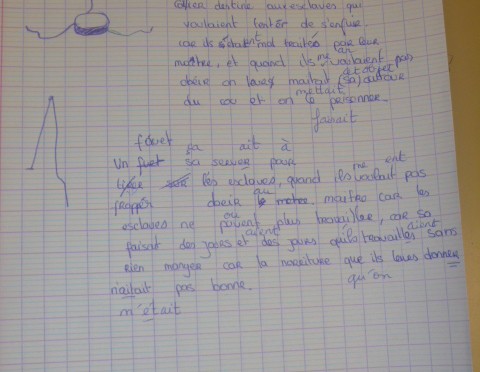 collier destiné aux esclaves qui
voulaient tenter de s'enfuir
car ils étaient mal traités par leur
maître, et quand ils ne voulaient pas
obéir on leurs mettait (sa) autour
du cou et on le prisonner.
faisait
fouet sa ait à
Un fuet sa servé pour
les esclaves, quand ils ne voulait pas
frapper obéir au maitre car les
esclaves ne ou pouvent plus travailler, car sa
faisait des jours et des jours qu'ils travailles sans
rien manger car la nouriture que ils leurs donner
n'aitait pas bonne. qu'on
n'était